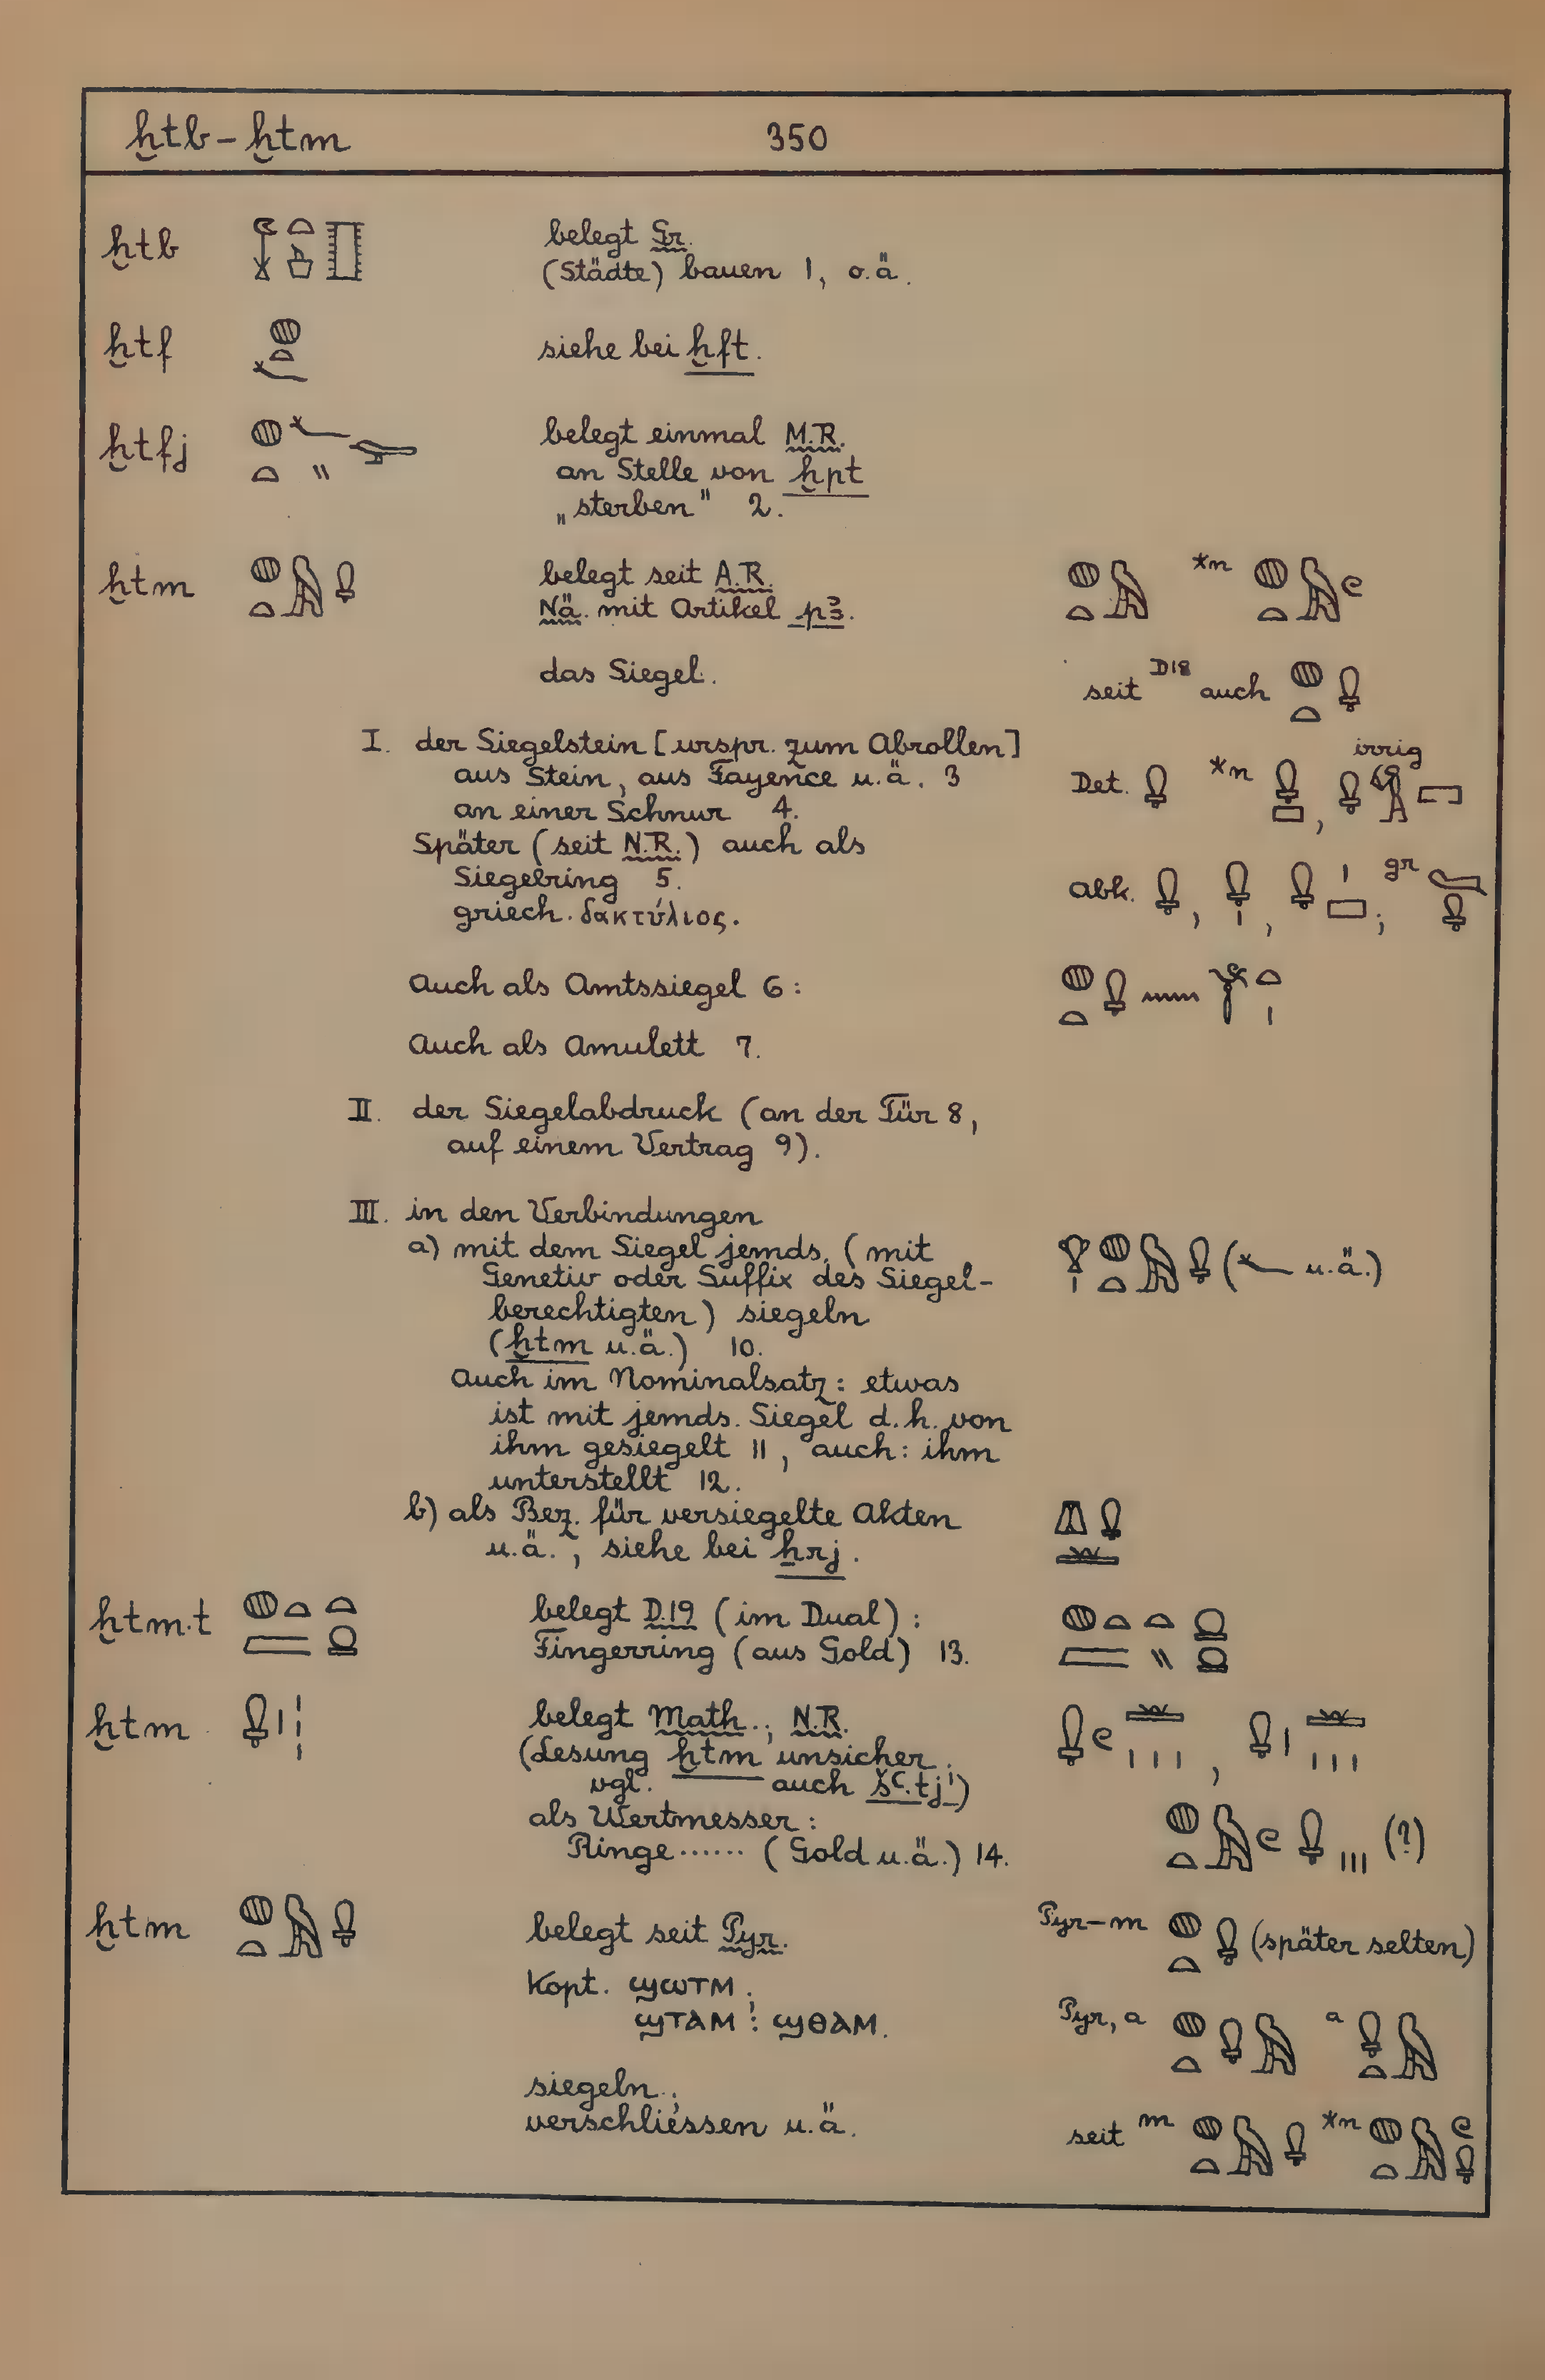 ḫtb – ḫtm 350
ḫtb belegt Gr.
(Städte) bauen 1, o.ä.
ḫtf siehe bei ḫft.
ḫtfj belegt einmal M.R.
an Stelle von ḫpt
„sterben" 2.
ḫtm belegt seit A.R. *n
Nä. mit Artikel p3.
das Siegel. seit D18 auch
I. der Siegelstein [urspr. zum Abrollen]
aus Stein, aus Fayence u.ä. 3 Det. *n , irrig
an einer Schnur 4.
Später (seit N.R.) auch als
Siegelring 5. abk. , , ; gr
griech. δακτύλιος.
Auch als Amtssiegel 6:
Auch als Amulett 7.
II. der Siegelabdruck (an der Tür 8,
auf einem Vertrag 9).
III. in den Verbindungen
a) mit dem Siegel jemds. (mit
Genetiv oder Suffix des Siegel- ( u.ä.)
berechtigten) siegeln
(ḫtm u.ä.) 10.
Auch im Nominalsatz: etwas
ist mit jemds. Siegel d.h. von
ihm gesiegelt 11, auch: ihm
unterstellt 12.
b) als Bez. für versiegelte Akten
u.ä., siehe bei ẖrj.
ḫtm.t belegt D.19 (im Dual):
Fingerring (aus Gold) 13.
ḫtm belegt Math.; N.R. ,
(Lesung ḫtm unsicher;
vgl. auch šꜥ.tj!)
als Wertmesser:
Ringe ...... (Gold u.ä.) 14. (?)
ḫtm belegt seit Pyr. Pyr–m (später selten)
Kopt. ϣωτⲙ;
ϣⲧⲁⲙ : ϣⲑⲁⲙ. Pyr, a a
siegeln;
verschliessen u.ä. seit m *n